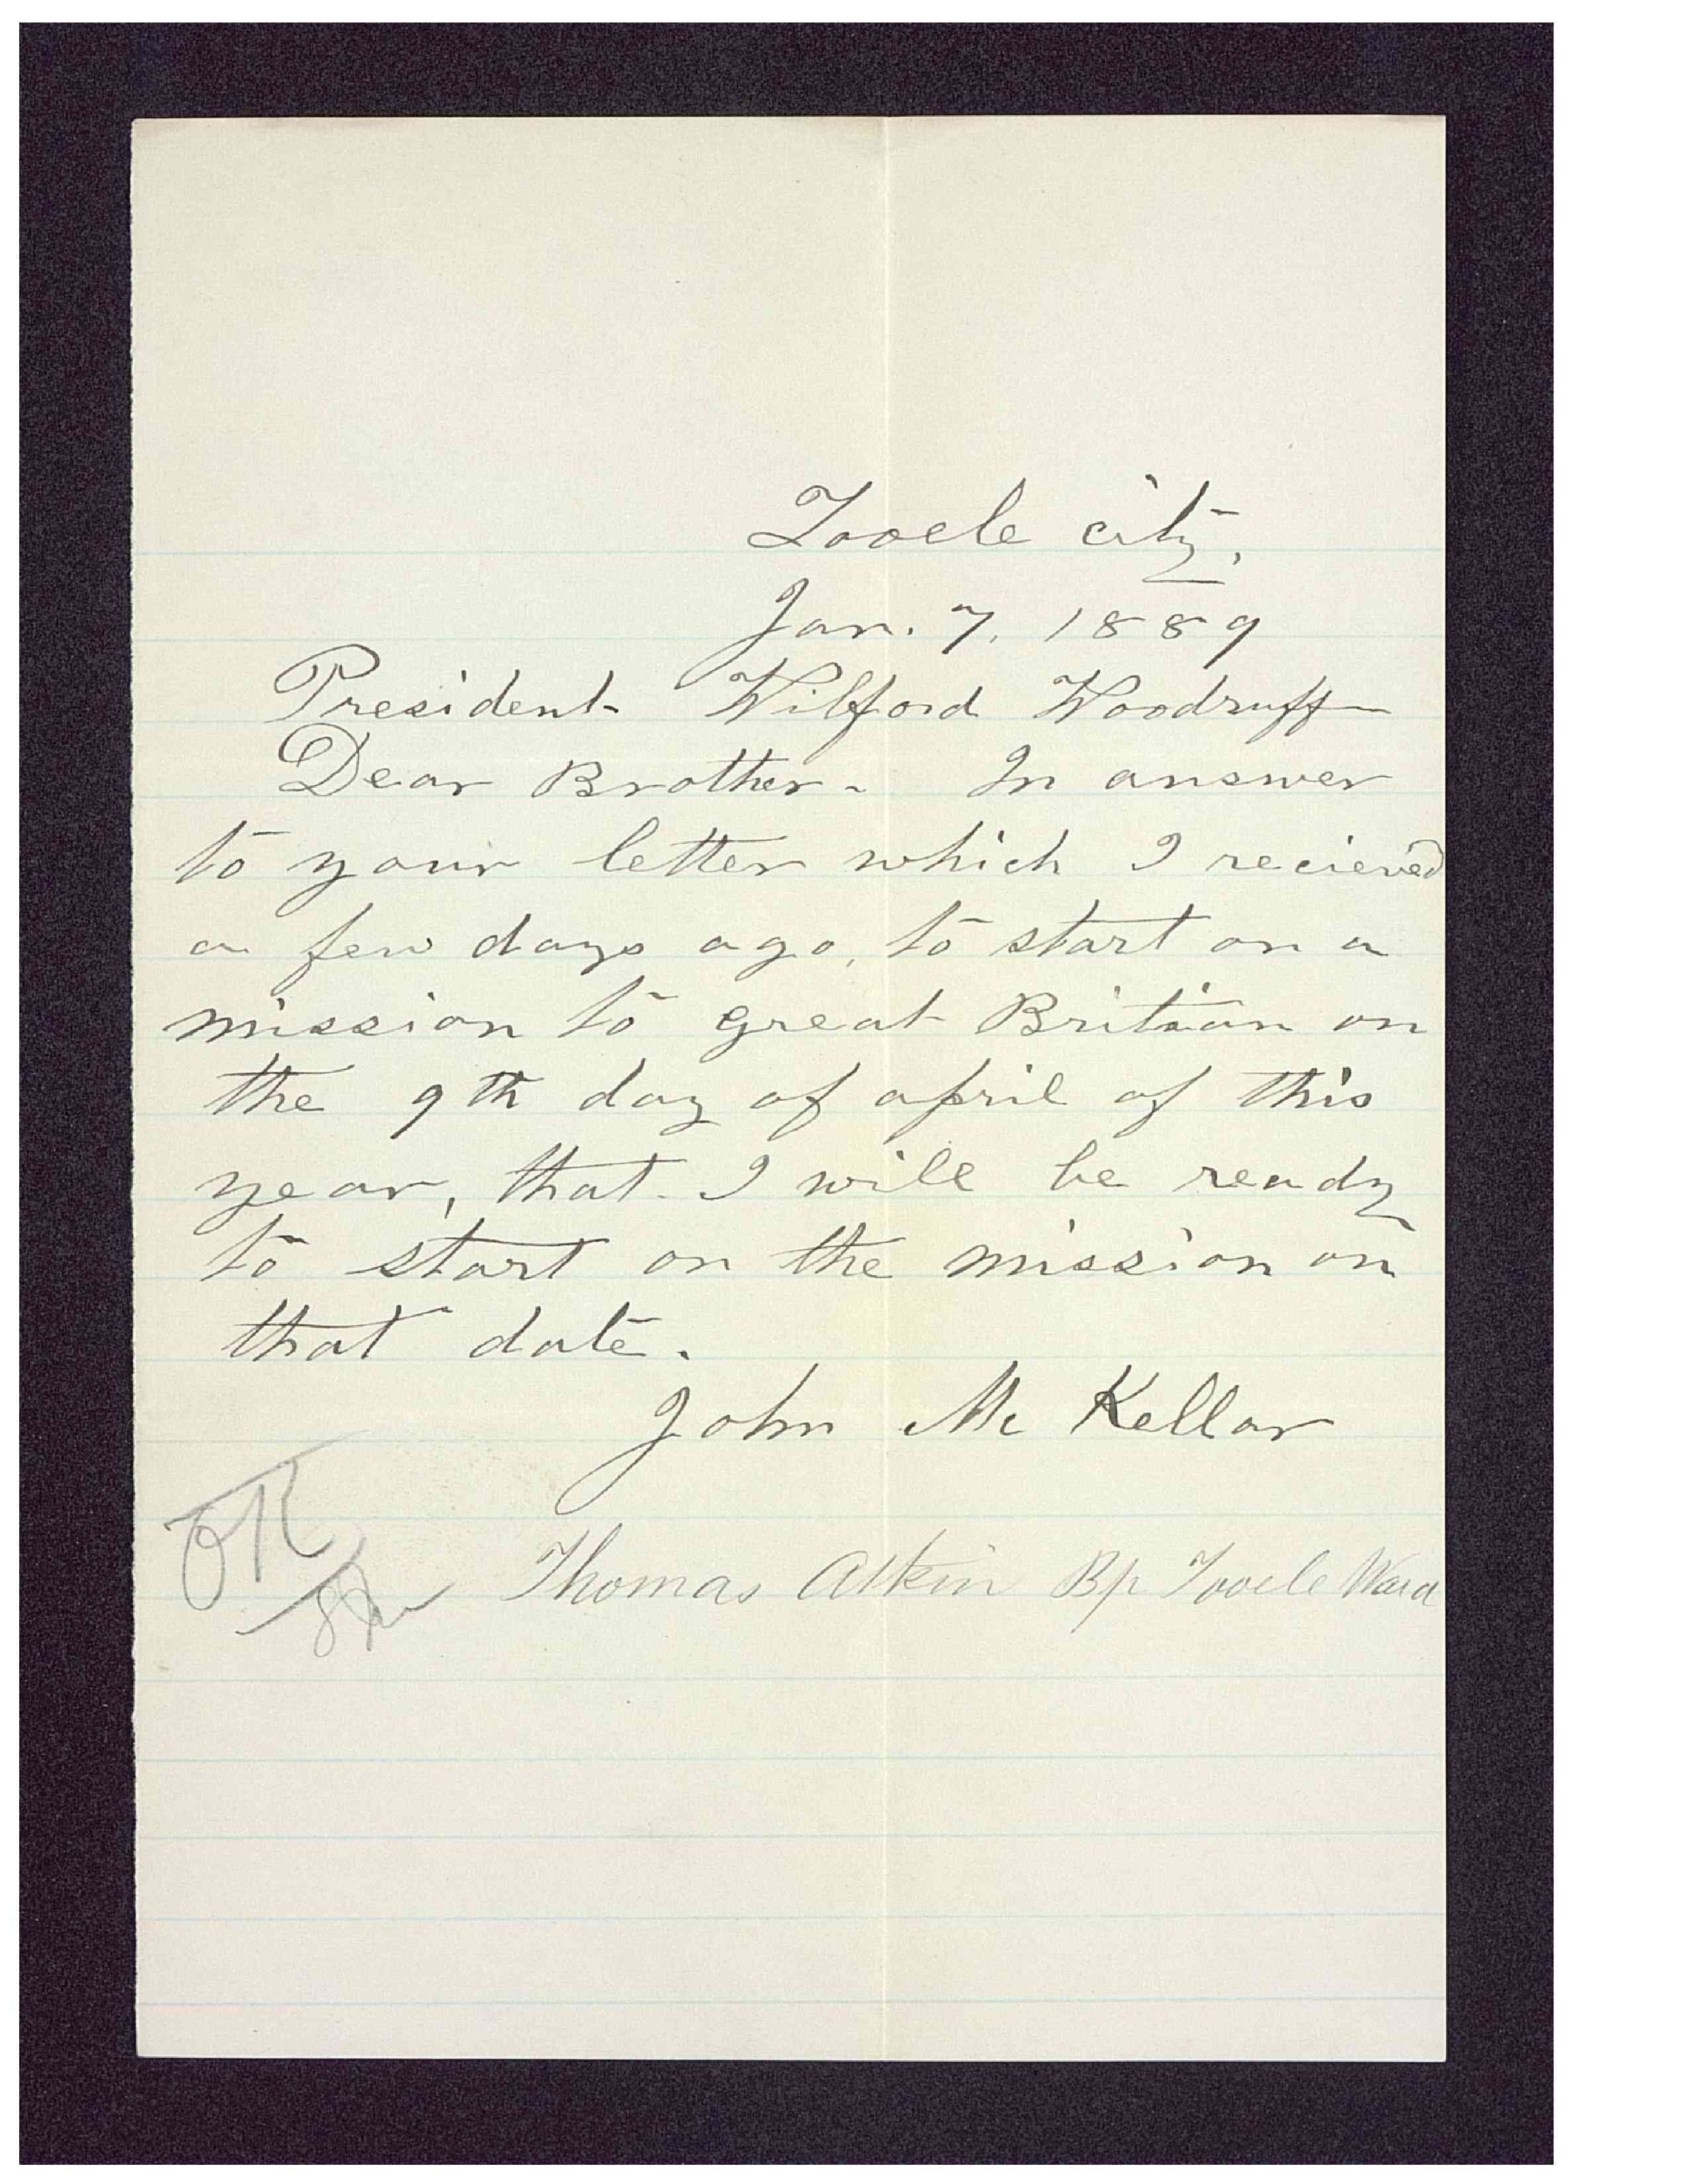 Tooele city,
Jan. 7, 1889
President Wilford Woodruff
Dear Brother - In answer
to your letter which I recieved
a few days ago, to start on a
mission to great Britian on
the 9th day of april of this
year, that I will be ready
to start on the mission on
that date.
John Mc Kellar
OK
Thomas Atkin Bp Tooele Ward